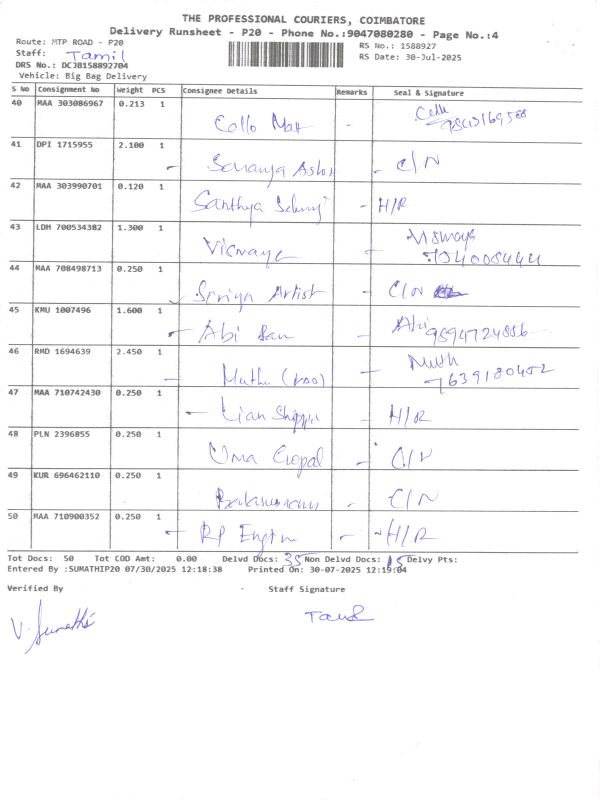 THE PROFESSIONAL COURIERS, COIMBATORE
Delivery Runsheet - P20 - Phone No.:9047080280 - Page No.:4
Route: MTP ROAD - P20
RS No.: 1588927
Staff: Tamil
RS Date: 30-Jul-2025
DRS No.: DCJB158892704
Vehicle: Big Bag Delivery
S No Consignment No Weight PCS Consignee Details Remarks Seal & Signature
40 MAA 303086967 0.213 1 Cello
41 DPI 1715955 2.100 1 Saranya - C/N
42 MAA 303990701 0.120 1 Santhya - H/R
43 LDH 700534382 1.300 1
44 MAA 708498713 0.250 1 Artist - C/N
45 KMU 1007496 1.600 1 Abi - Abi 9894724886
46 RMD 1694639 2.450 1 Muthu - 7639180452
47 MAA 710742430 0.250 1 - Lian - H/R
48 PLN 2396855 0.250 1 Uma Gopal - C/N
49 KUR 696462110 0.250 1 - C/N
50 MAA 710900352 0.250 1 RP - H/R
Tot Docs: 50 Tot COD Amt: 0.00 Delvd Docs: 35 Non Delvd Docs: 15 Delvy Pts:
Entered By :SUMATHIP20 07/30/2025 12:18:38 Printed On: 30-07-2025 12:19:04
Verified By - Staff Signature
V. Sumathi